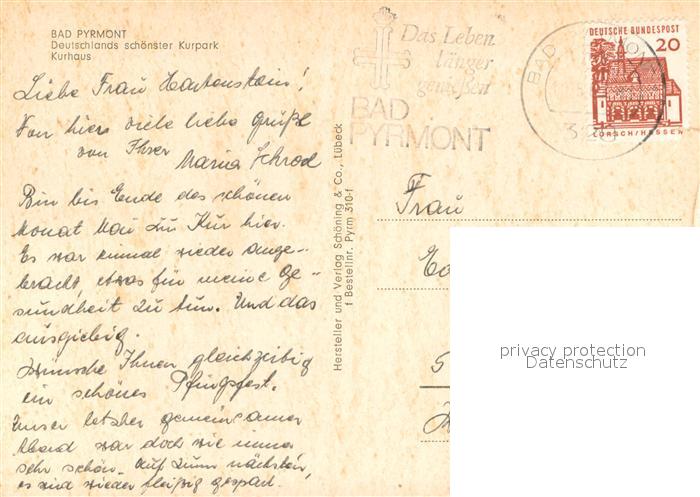 BAD PYRMONT
Deutschlands schönster Kurpark
Kurhaus
Liebe Frau Hartenstein!
Von hier viele liebe Grüße
von Ihrer
Maria Schrod
Bin bis Ende des schönen
Monat Mai zu Kur hier.
Es war einmal wieder ange-
bracht, etwas für meine Ge-
sundheit zu tun. Und das
ausgiebig.
Wünsche Ihnen gleichzeitig
ein schönes Pfingstfest.
Unser letzter gemeinsamer
Abend war doch wie immer
sehr schön. Auf zum nächsten,
es wird wieder fleißig gespart.
Hersteller und Verlag Schöning & Co., Lübeck
f Bestellnr. Pyrm 310-f
Das Leben
länger
genießen
BAD
PYRMONT
BAD PYRMONT
328
DEUTSCHE BUNDESPOST
20
LORSCH/HESSEN
Frau
privacy protection
Datenschutz